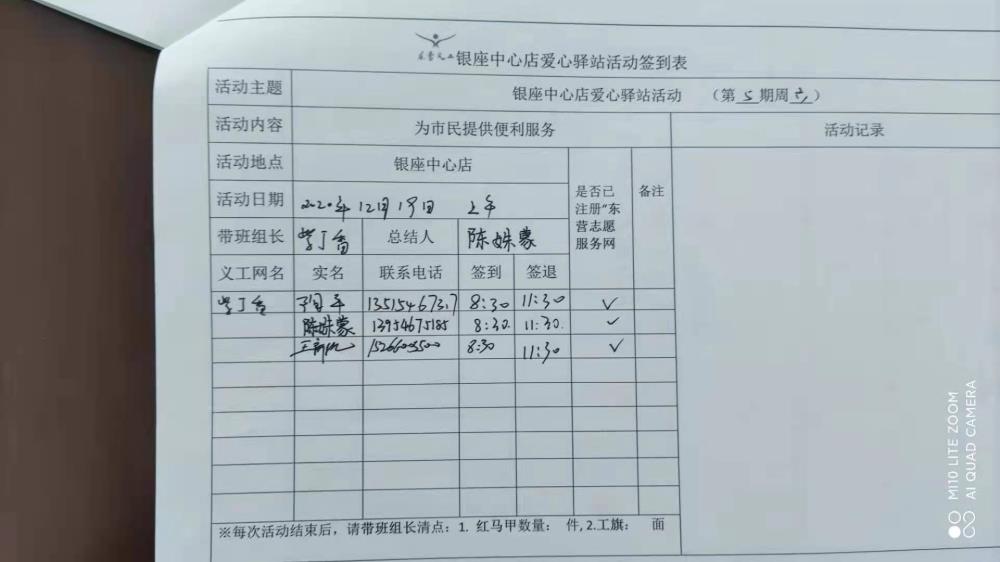 东营义工 银座中心店爱心驿站活动签到表
活动主题 银座中心店爱心驿站活动 (第5期周六)
活动内容 为市民提供便利服务 活动记录
活动地点 银座中心店 是否已注册“东营志愿服务网 备注
活动日期 2020年12月19日 上午
带班组长 紫丁香 总结人 陈姝蒙
义工网名 实名 联系电话 签到 签退
紫丁香 13515467317 8:30 11:30 ✓
陈姝蒙 13954675185 8:30. 11:30. ✓
8:30 11:30 ✓
※每次活动结束后，请带班组长清点：1. 红马甲数量： 件, 2.工旗： 面
MI10 LITE ZOOM
AI QUAD CAMERA